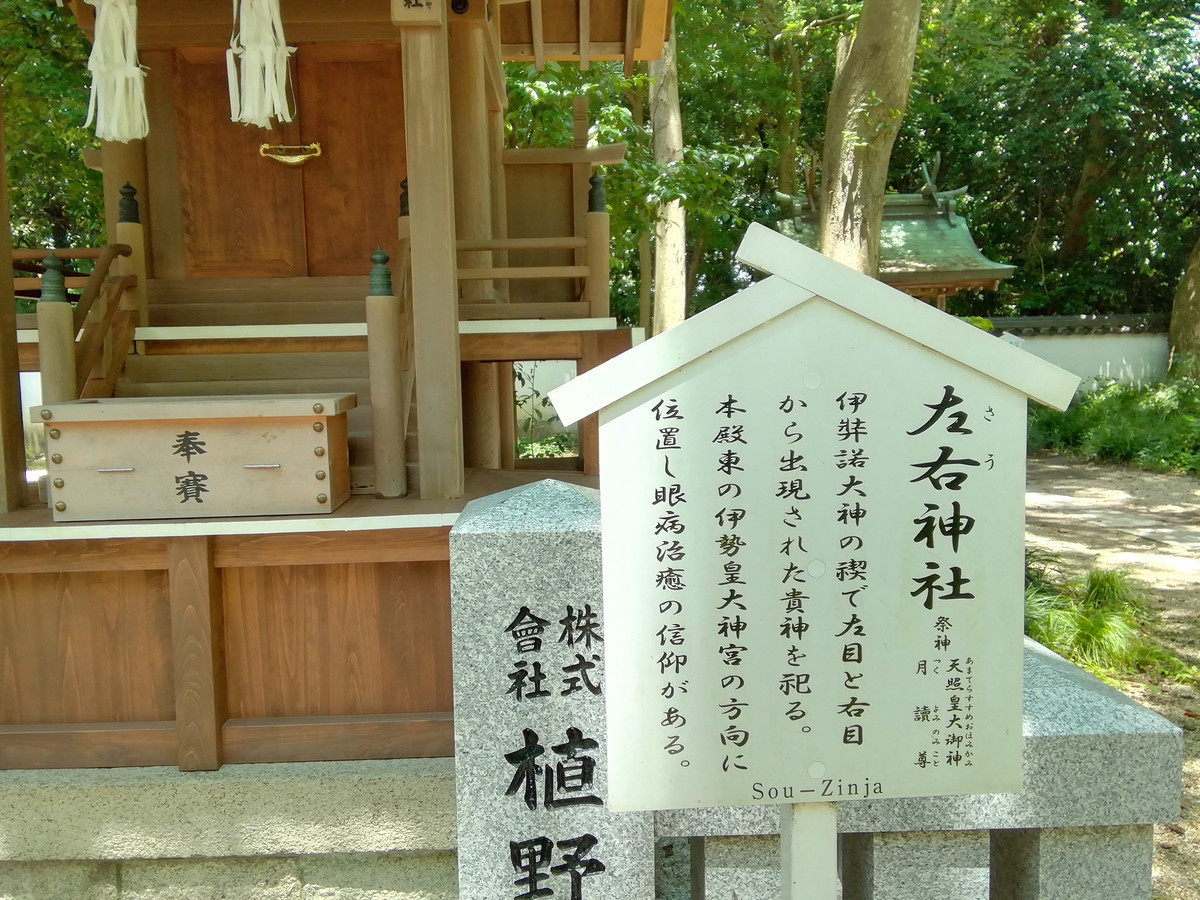 左右神社
さう
祭神
天照皇大御神
あまてらすすめおほみかみ
月讀尊
つくよみのみこと
伊弉諾大神の禊で左目と右目
から出現された貴神を祀る。
本殿東の伊勢皇大神宮の方向に
位置し眼病治癒の信仰がある。
Sou－Zinja
奉賽
株式會社
植野
社